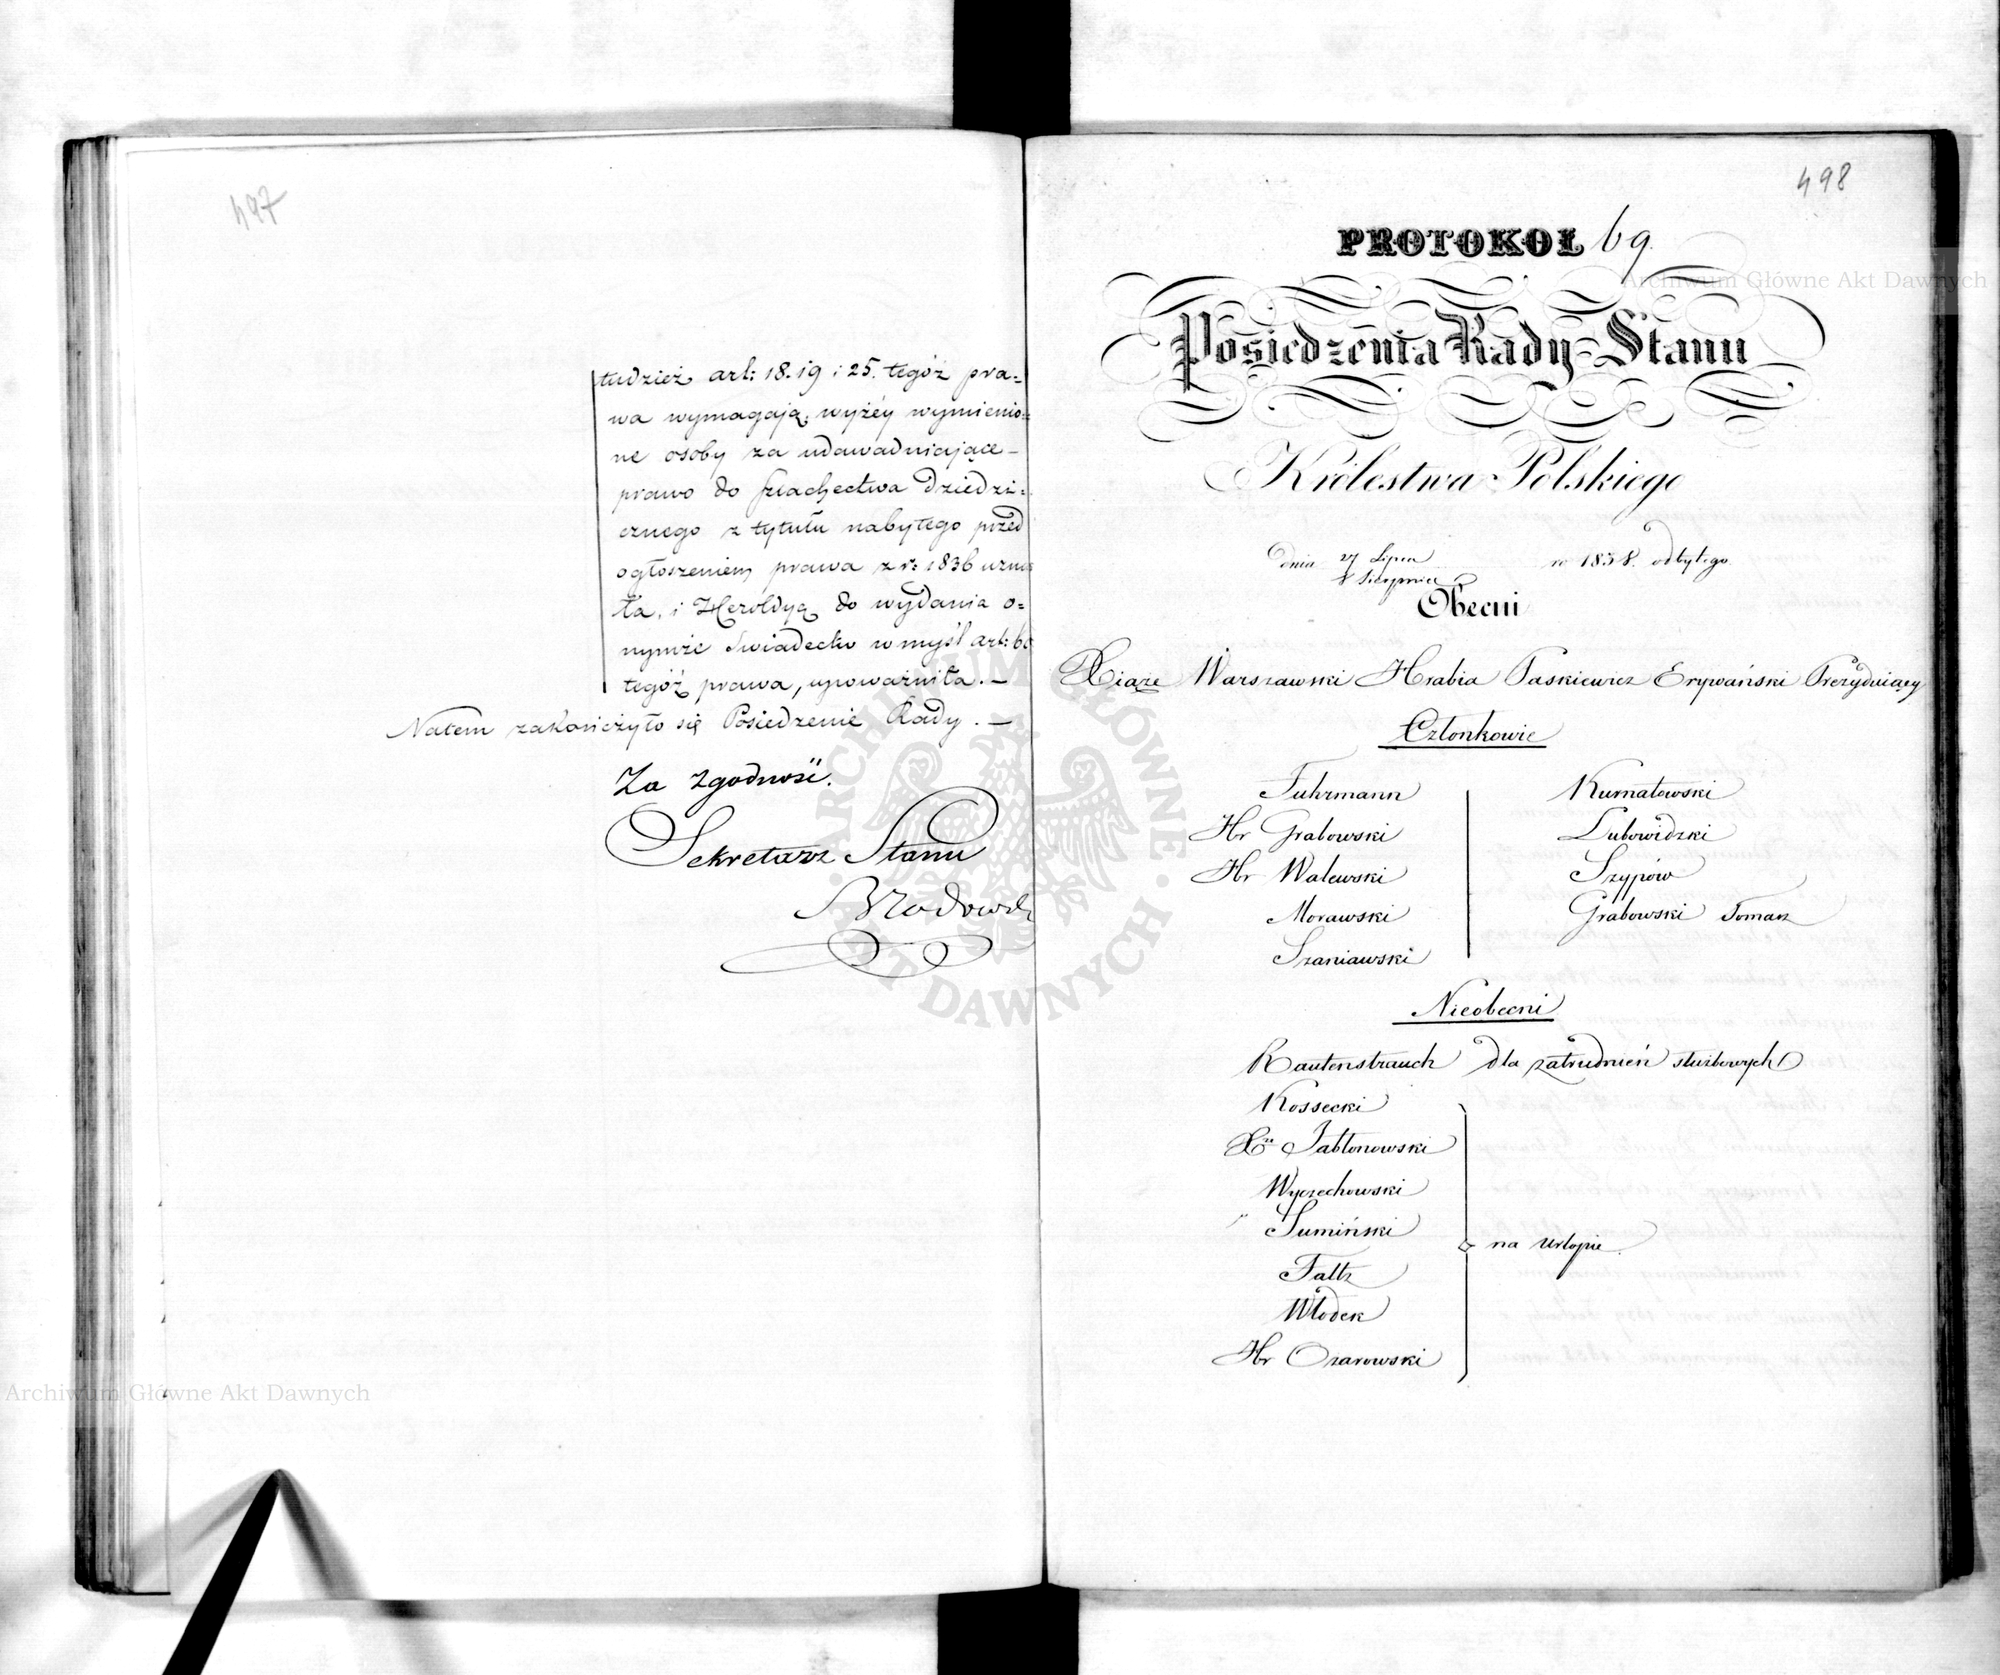 497
tudzież art: 18. 19 i 25. tegóż pra-
wa wymagają, wyżéy wymienio-
ne osoby za udowadniające
prawo do szlachectwa dziedzi-
cznego z tytułu nabytego przed
ogłoszeniem prawa z r: 1836 uzna
ła, i Heroldyą do wydania o-
nymże Świadectw w myśl art: 60
tegóż prawa, upoważniła. —
Natem zakończyło się Posiedzenie Rady. —
Za Zgodność.
Sekretarz Stanu
Archiwum Główne Akt Dawnych
498
PROTOKOŁ 69.
Archiwum Główne Akt Dawnych
Posiedzenia Rady Stanu
Królestwa Polskiego
dnia 27 Lipca / 8 Sierpnia ro 1838. odbytego
Obecni
Xiąże Warszawski Hrabia Paskiewicz Erywański Prezyduiący
Członkowie
Fuhrmann Kurnatowski
Hr Grabowski Lubowidzki
Hr Walewski Szypów
Morawski Grabowski Tomasz
Szaniawski
Nieobecni
Rautenstrauch dla zatrudnień służbowych
Kossecki
Xże Jabłonowski
Wyczechowski
Sumiński
na urlopie.
Faltz
Włodek
Hr Ożarowski
ARCHIWUM GŁÓWNE AKT DAWNYCH